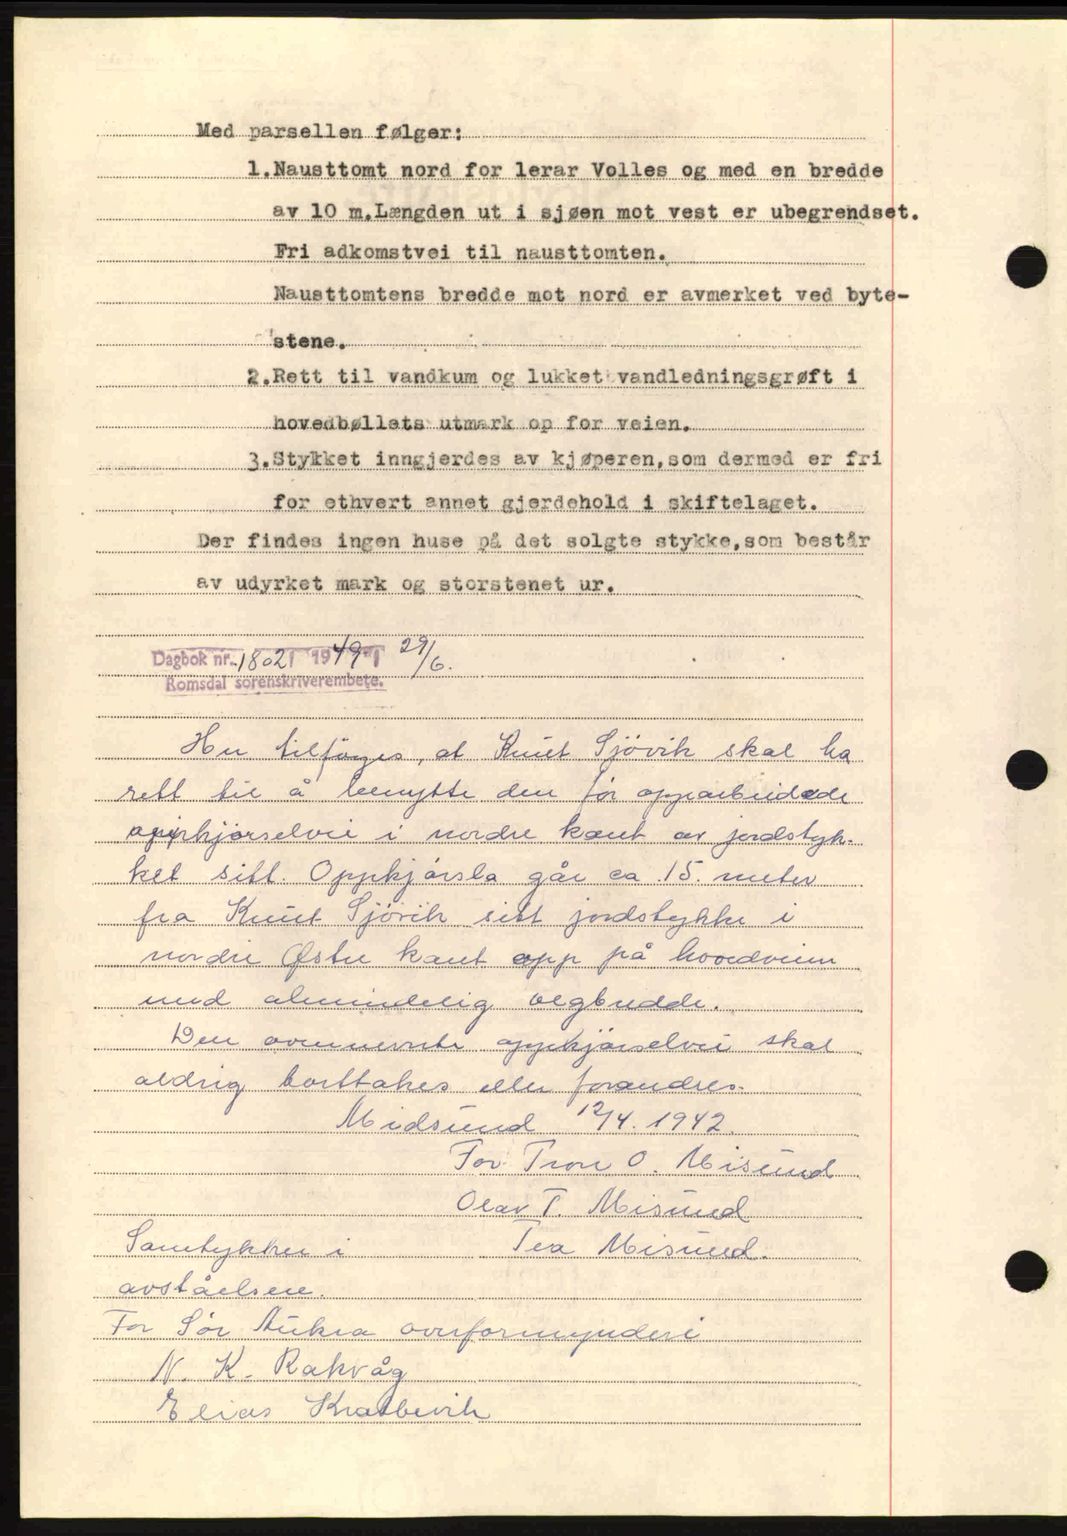 Med parsellen følger:
1.Nausttomt nord for lerar Volles og med en bredde
av 10 m.Længden ut i sjøen mot vest er ubegrendset.
Fri adkomstvei til nausttomten.
Nausttomtens bredde mot nord er avmerket ved byte-
stene.
2.Rett til vandkum og lukket vandledningsgrøft i
hovedbøllets utmark op for veien.
3.Stykket inngjerdes av kjøperen,som dermed er fri
for ethvert annet gjerdehold i skiftelaget.
Der findes ingen huse på det solgte stykke,som består
av udyrket mark og storstenet ur.
Dagbok nr. 1802 1949 29/6.
Romsdal sorenskriverembete.
Her tilføyes, at Knut Sjövik skal ha
rett til å benytte den før opparbeidede
oppkjørselvei i nordre kant av jordstyk-
ket sitt. Oppkjørsla går ca. 15. meter
fra Knut Sjövik sitt jordstykke i
nordre Østre kant opp på hovedveien
med almindelig vegbredde.
Den ovennevnte oppkjørselvei skal
aldrig borttakes eller forandres.
Midsund 12/4. 1942.
For Tron O. Misund
Olav T. Misund
Tea Misund.
Samtykker i
avståelsen.
For Sør Aukra overformynderi
N. K. Rakvåg
Elias